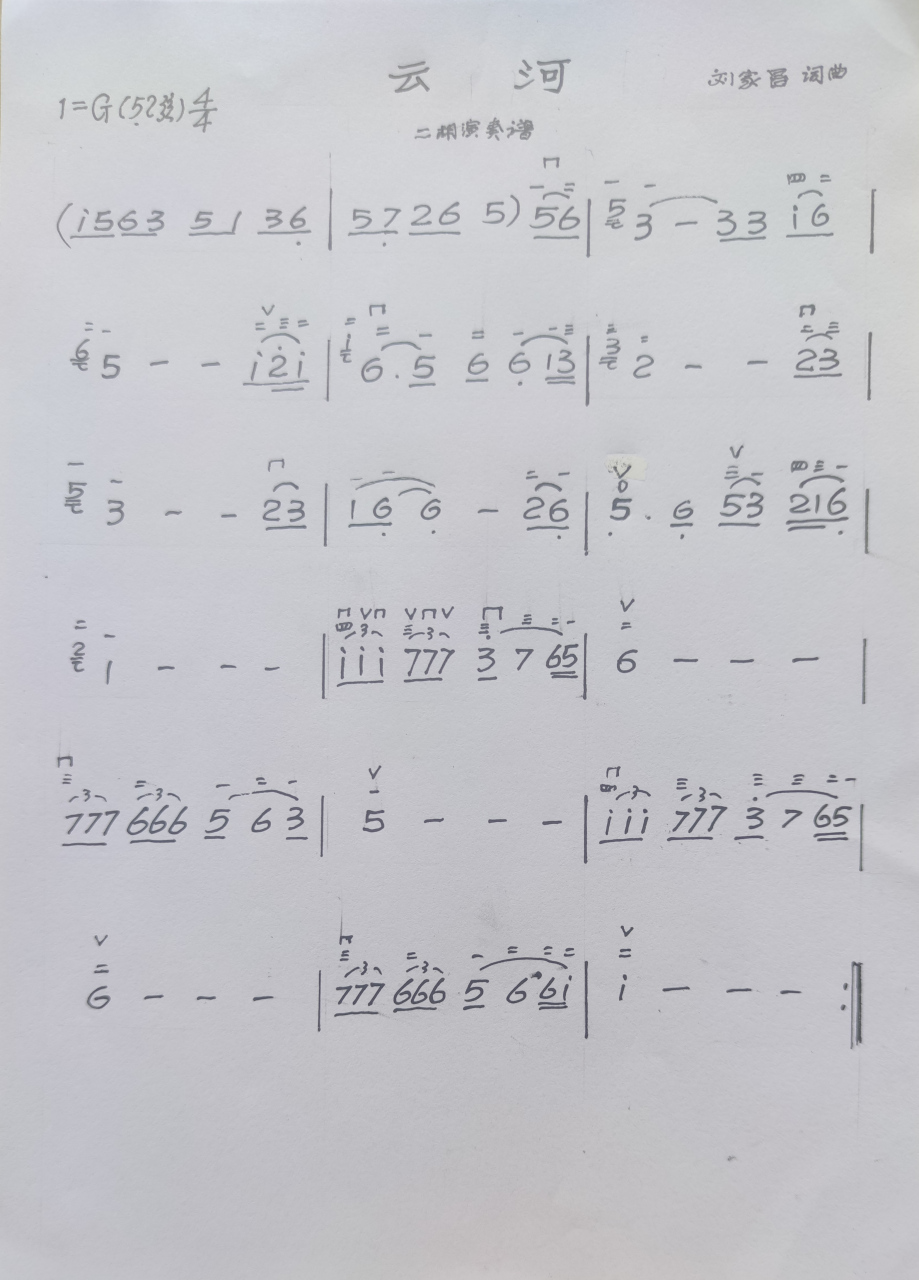 云 河
刘家昌 词曲
1=G(52弦)4/4
二胡演奏谱
(i563 51 36 | 57 26 5) 56 | 5 3 - 33 i6 |
6 5 - - i2i | 1 6.5 6 6 13 | 3 2 - - 23 |
5 3 - - 23 | 16 6 - 26 | 5. 6 53 216 |
2 1 - - - | iii 777 3 7 65 | 6 - - - |
777 666 5 6 3 | 5 - - - | iii 777 3 7 65 |
6 - - - | 777 666 5 6 6i | i - - - :‖